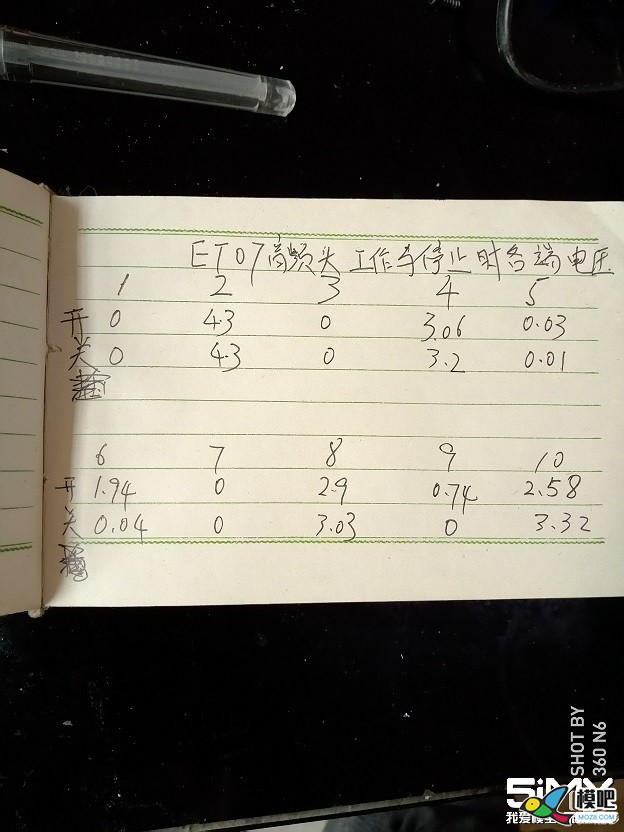 ET07高频头工作与停止时各端电压
1 2 3 4 5
开 0 4.3 0 3.06 0.03
关 0 4.3 0 3.2 0.01
6 7 8 9 10
开 1.94 0 2.9 0.74 2.58
关 0.04 0 3.03 0 3.32
SHOT BY
360 N6
5iMX
我爱模型
模吧
MOZ8.COM